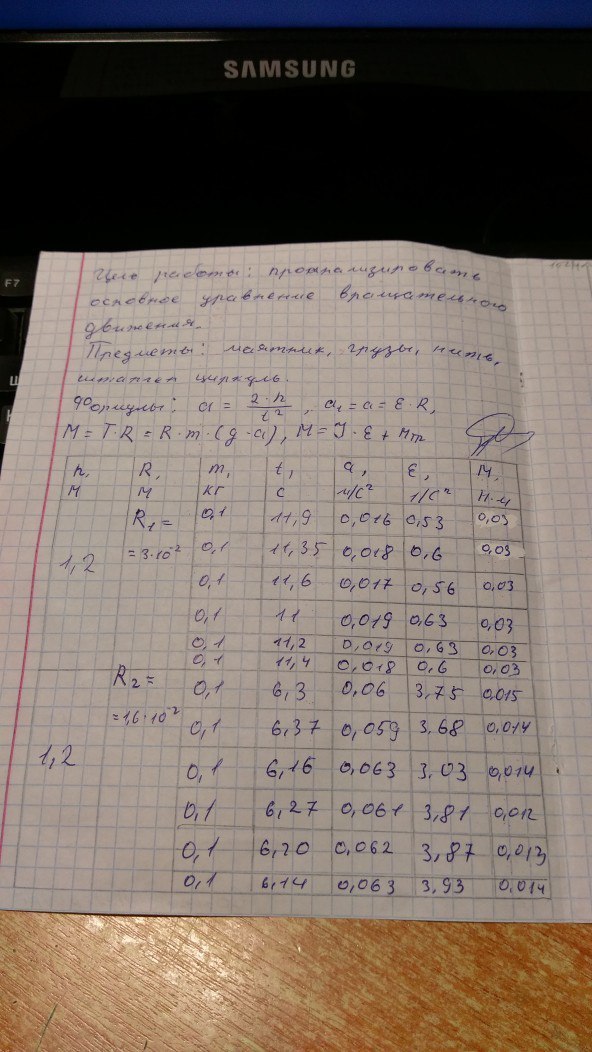 SAMSUNG
F7
Цель работы: проанализировать
основное уравнение вращательного
движения.
Предметы: маятник, грузы, нить,
штанген циркуль.
Формулы: a = 2·h/t², a₁ = a = ε·R,
M = T·R = R·m·(g-a), M = J·ε + Mт
h, R, m, t, a, ε, M,
м м кг с м/с² 1/с² Н·м
R₁ = 0,1 11,9 0,016 0,53 0,03
1,2 = 3·10⁻² 0,1 11,35 0,018 0,6 0,03
0,1 11,6 0,017 0,56 0,03
0,1 11 0,019 0,63 0,03
0,1 11,2 0,019 0,63 0,03
0,1 11,4 0,018 0,6 0,03
R₂ = 0,1 6,3 0,06 3,75 0,015
= 1,6·10⁻² 0,1 6,37 0,059 3,68 0,014
1,2 0,1 6,16 0,063 3,03 0,014
0,1 6,27 0,061 3,81 0,012
0,1 6,20 0,062 3,87 0,013
0,1 6,14 0,063 3,93 0,014